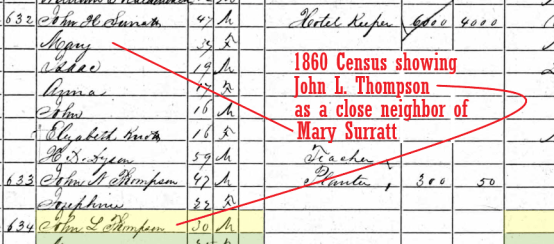 632 John H Surratt 47 M Hotel Keeper 6000 4000
Mary F
Isaac 19 M
Anna 17 F
John 16 M
Elizabeth 16 F
H. D. Dyson 59 M Teacher
633 John N Thompson 47 M Planter 300 50
Josephine 22 F
634 John L Thompson 30 M
1860 Census showing
John L. Thompson
as a close neighbor of
Mary Surratt